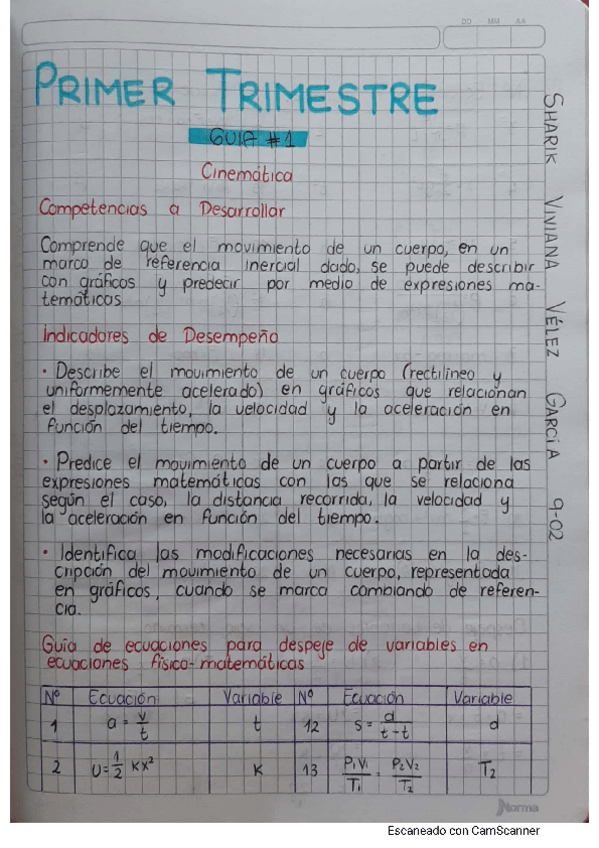 DD MM AA
PRIMER TRIMESTRE
GUIA #1
Cinemática
Competencias a Desarrollar
Comprende que el movimiento de un cuerpo, en un
marco de referencia inercial dado, se puede describir
con gráficos y predecir por medio de expresiones ma-
temáticos
Indicadores de Desempeño
· Describe el movimiento de un cuerpo (rectilíneo y
uniformemente acelerado) en gráficos que relacionan
el desplazamiento, la velocidad y la aceleración en
función del tiempo.
· Predice el movimiento de un cuerpo a partir de las
expresiones matemáticas con las que se relaciona
según el caso, la distancia recorrida, la velocidad y
la aceleración en función del tiempo.
· Identifica las modificaciones necesarias en la des-
cripción del movimiento de un cuerpo, representada
en gráficos, cuando se marca cambiando de referen-
cia.
Guía de ecuaciones para despeje de variables en
ecuaciones físico-matemáticas
Nº Ecuación Variable Nº Ecuación Variable
1 a = v/t t 12 s = d/t-t d
2 U = 1/2 Kx² K 13 P₁V₁/T₁ = P₂V₂/T₂ T₂
SHARIK VIVIANA VÉLEZ GARCIA 9-02
Norma
Escaneado con CamScanner